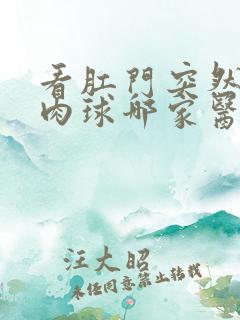 看肛門突然
肉球哪家醫
汪大昭
未任同意禁止轉載